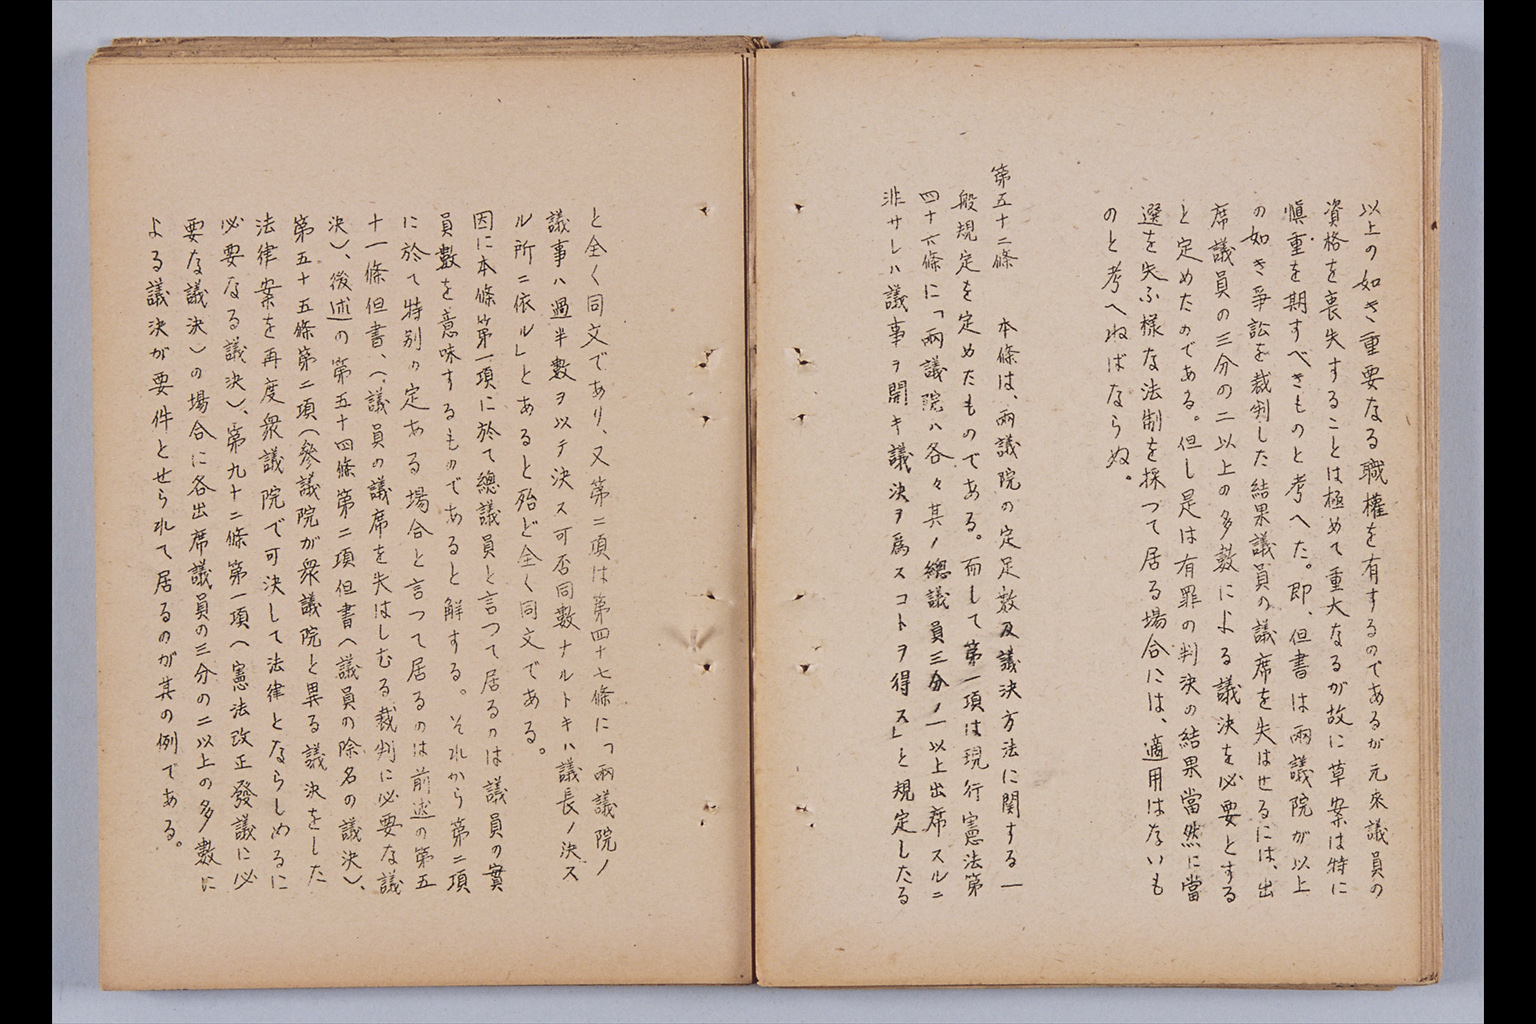 以上の如き重要なる職權を有するのであるが元來議員の
資格を喪失することは極めて重大なるが故に草案は特に
愼重を期すべきものと考へた。即、但書は兩議院が以上
の如き爭訟を裁判した結果議員の議席を失はせるには、出
席議員の三分の二以上の多數による議決を必要とする
と定めたのである。但し是は有罪の判決の結果當然に當
選を失ふ樣な法制を採つて居る場合には、適用はないも
のと考へねばならぬ。
第五十二條　本條は、兩議院の定足數及議決方法に関する一
般規定を定めたものである。而して第一項は現行憲法第
四十六條に「兩議院ハ各々其ノ總議員三分ノ一以上出席スルニ
非サレハ議事ヲ開キ議決ヲ爲スコトヲ得ス」と規定したる
と全く同文であり、又第二項は第四十七條に「兩議院ノ
議事ハ過半數ヲ以テ決ス可否同數ナルトキハ議長ノ決ス
ル所ニ依ル」とあると殆ど全く同文である。
因に本條第一項に於て總議員と言つて居るのは議員の實
員數を意味するものであると解する。それから第二項
に於て特別の定ある場合と言つて居るのは前述の第五
十一條但書、（議員の議席を失はしむる裁判に必要な議
決）、後述の第五十四條第二項但書（議員の除名の議決）、
第五十五條第二項（參議院が衆議院と異る議決をした
法律案を再度衆議院で可決して法律とならしめるに
必要なる議決）、第九十二條第一項（憲法改正發議に必
要な議決）の場合に各出席議員の三分の二以上の多數に
よる議決が要件とせられて居るのが其の例である。